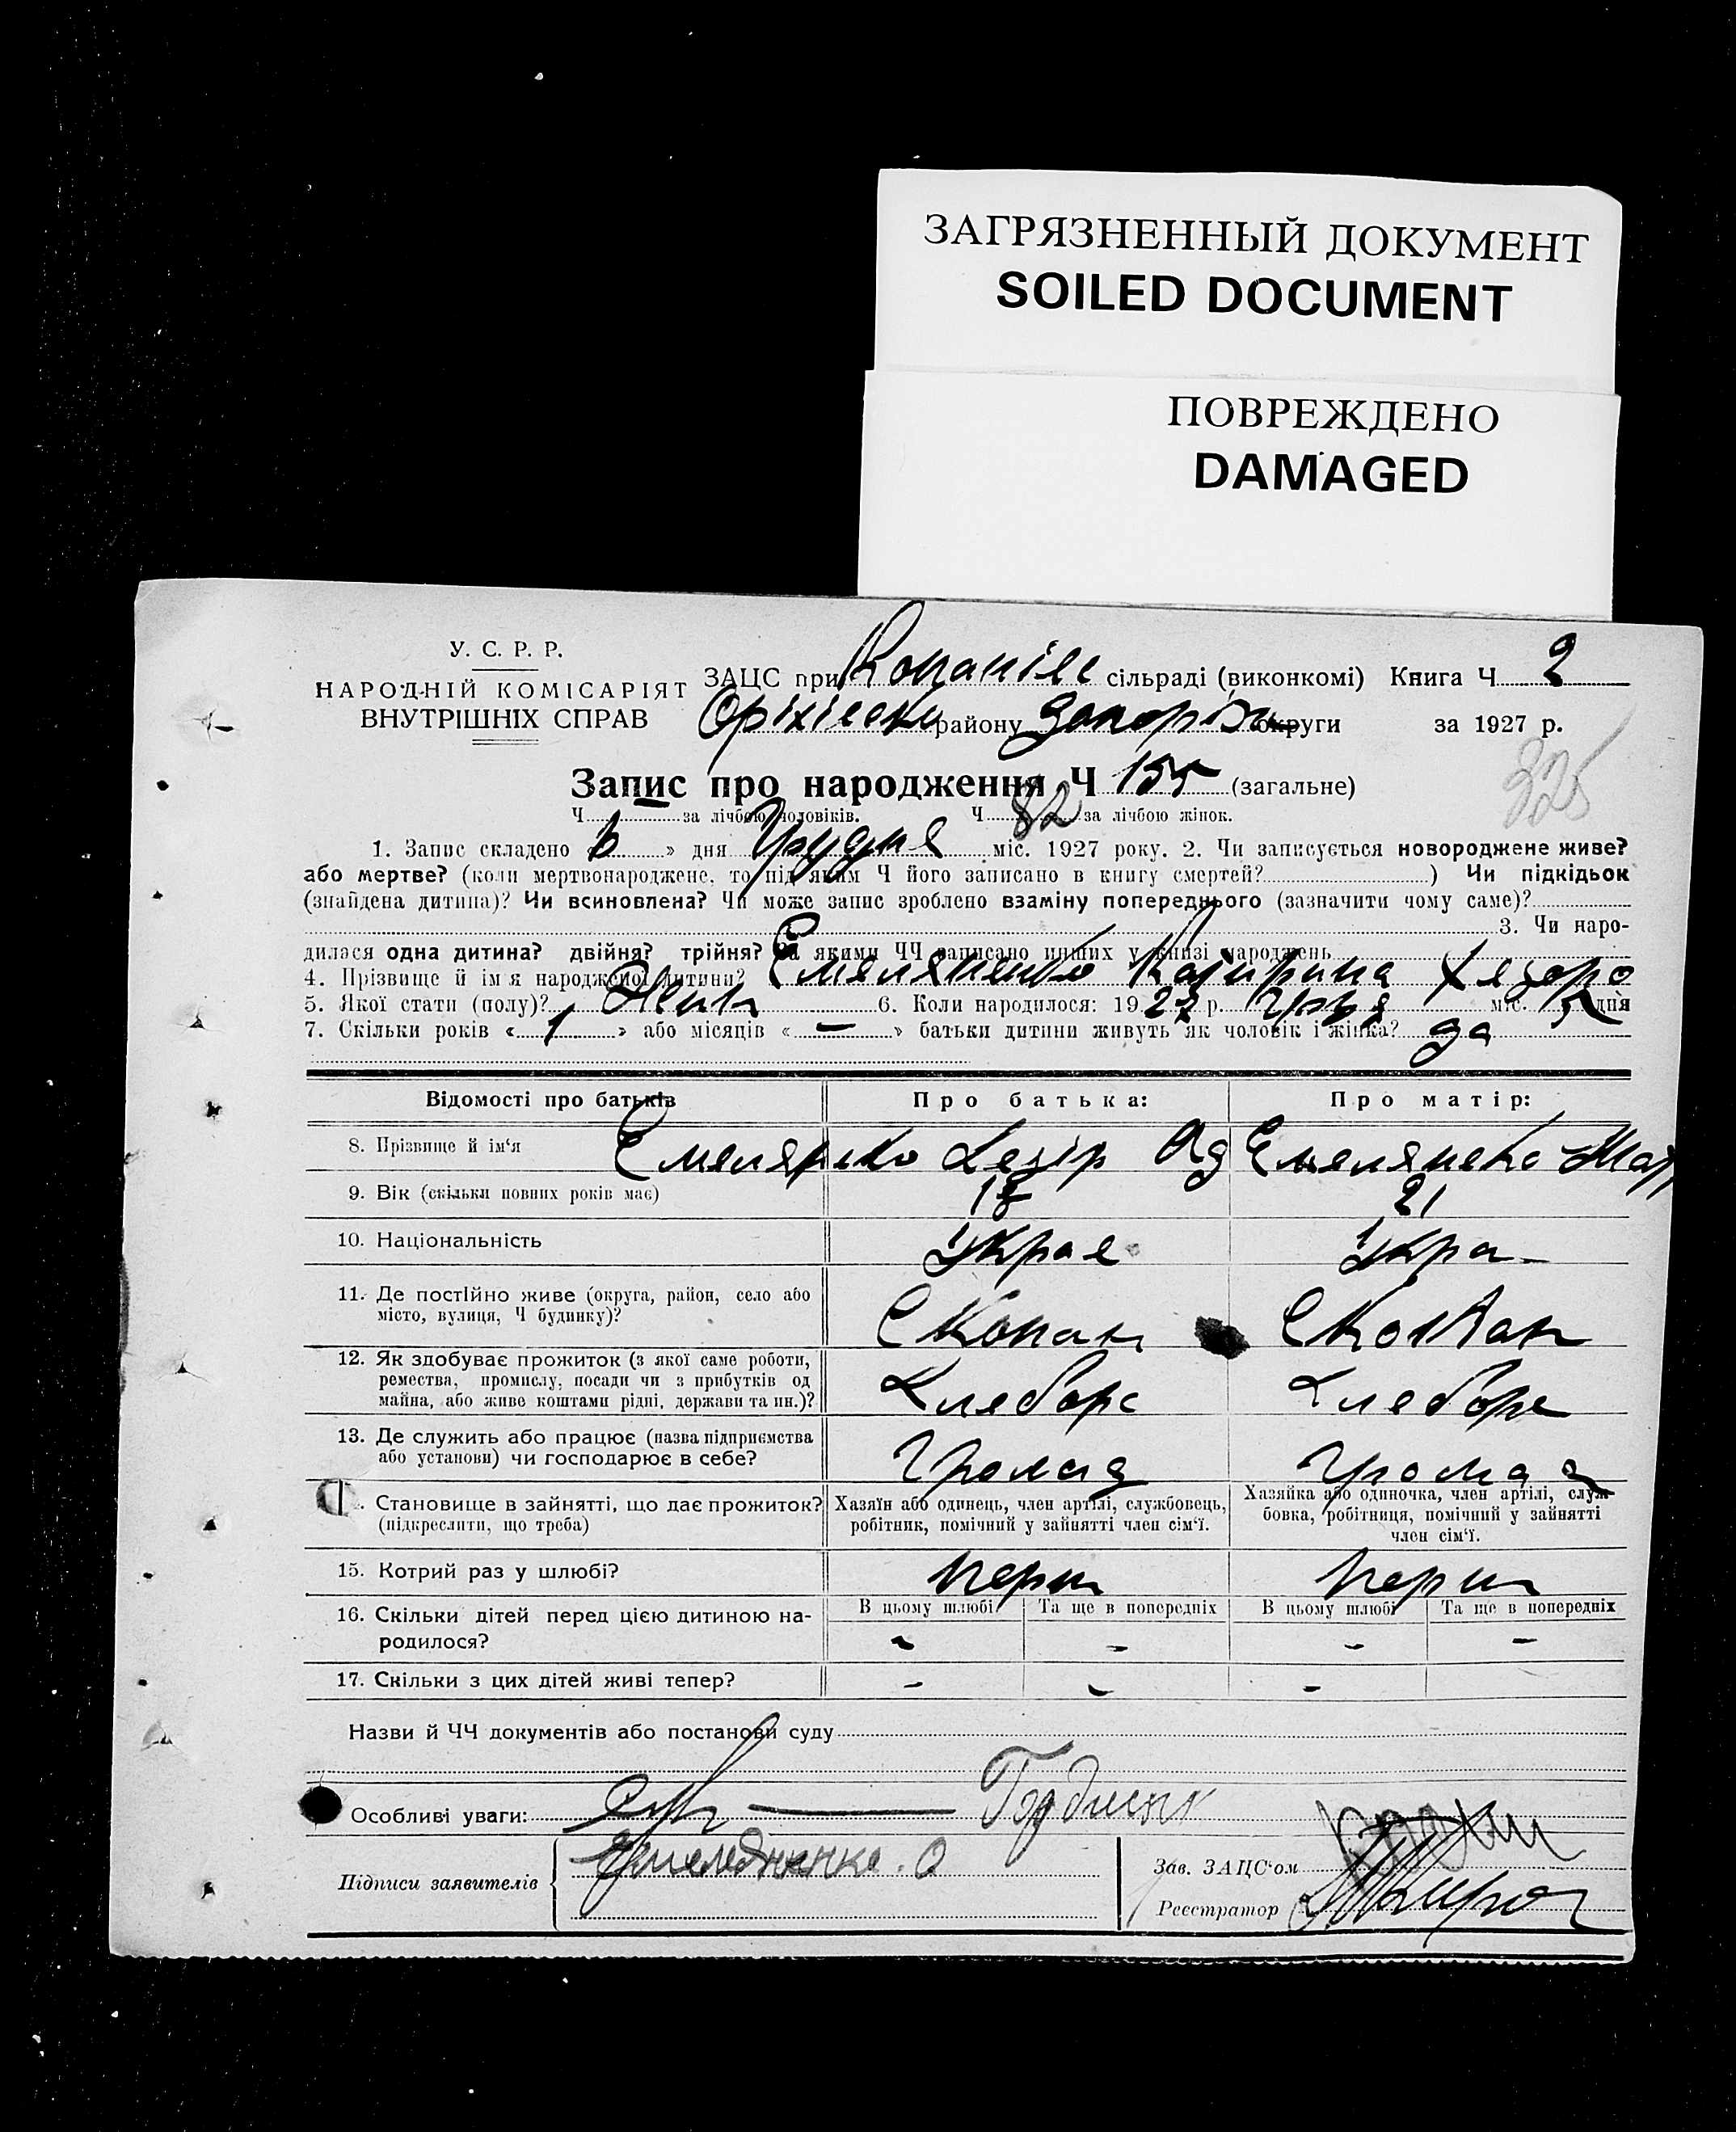 ЗАГРЯЗНЕННЫЙ ДОКУМЕНТ
SOILED DOCUMENT
ПОВРЕЖДЕНО
DAMAGED
У. С. Р. Р.
НАРОДНІЙ КОМІСАРІЯТ
ВНУТРІШНІХ СПРАВ
ЗАЦС при Копанівс сільраді (виконкомі) Книга Ч 2
Оріхівско району Запоріж округи за 1927 р.
325
Запис про народження Ч 155 (загальне)
Ч — за лічбою чоловіків. Ч 82 за лічбою жінок.
1. Запис складено «6» дня Грудня міс. 1927 року. 2. Чи записується новороджене живе?
або мертве? (коли мертвонароджене, то під яким Ч його записано в книгу смертей? ) Чи підкідьок
(знайдена дитина)? Чи всиновлена? Чи може запис зроблено взаміну попереднього (зазначити чому саме)?
3. Чи наро-
дилася одна дитина? двійня? трійня? За якими ЧЧ записано инших у книзі народжень
4. Прізвище й ім'я народженої дитини? Емеляненко Катирина Хедоро
5. Якої статі (полу)? Жин 6. Коли народилося: 1927 р. міс. 5 дня
7. Скільки років «1» або місяців «—» батьки дитини живуть як чоловік і жінка? да
Відомості про батьків Про батька: Про матір:
8. Прізвище й ім'я Емеляненко Хедір Емеляненко Мар
9. Вік (скільки повних років має) 21
10. Національність Украе Укра
11. Де постійно живе (округа, район, село або
місто, вулиця, Ч будинку)? С Копан С Копан
12. Як здобуває прожиток (з якої саме роботи,
ремества, промислу, посади чи з прибутків од
майна, або живе коштами рідні, держави та ин.)? Хлебороб Хлебороб
13. Де служить або працює (назва підприємства
або установи) чи господарює в себе? Громад Громад
. Становище в зайнятті, що дає прожиток?
(підкреслити, що треба)
Хазяїн або одинець, член артілі, службовець,
робітник, помічний у зайнятті член сім'ї.
Хазяйка або одиночка, член артілі, служ-
бовка, робітниця, помічний у зайнятті
член сім'ї.
15. Котрий раз у шлюбі? перш перш
16. Скільки дітей перед цією дитиною на-
родилося?
В цьому шлюбі Та ще в попередніх В цьому шлюбі Та ще в попередніх
- - - -
17. Скільки з цих дітей живі тепер? - - -
Назви й ЧЧ документів або постанови суду
Особливі уваги:
Підписи заявителів
Зав. ЗАЦС'ом
Реєстратор